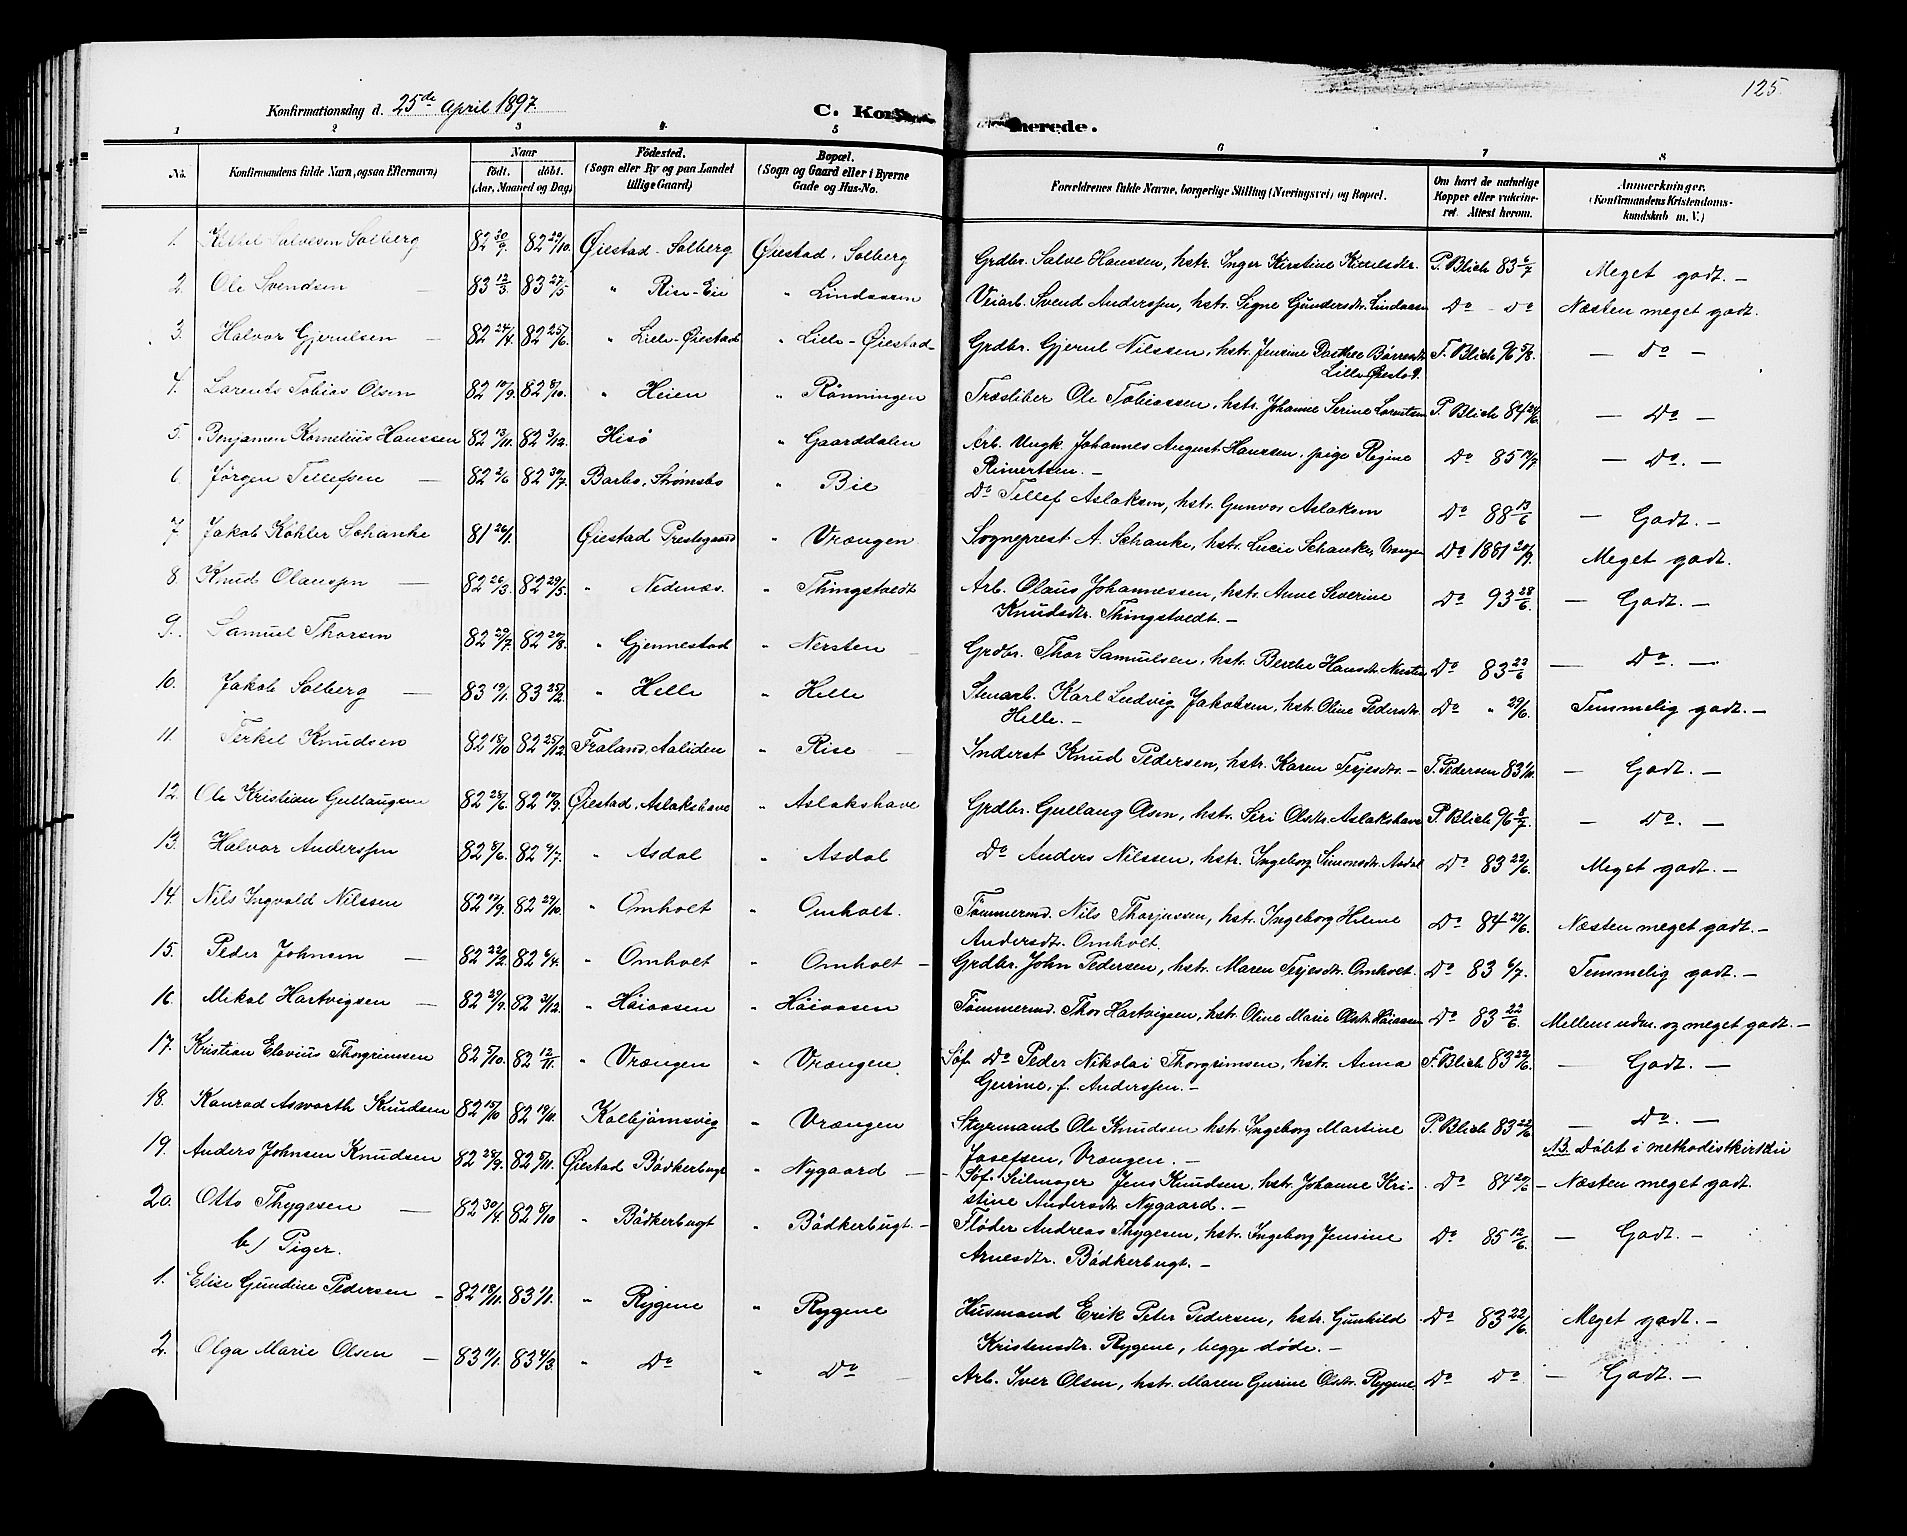 125.
Konfirmationsdag d. 25de April 1897.
C. Kon
merede.
1 2 3 4 5 6 7 8
No. Konfirmandens fulde Navn, ogsaa Efternavn) Naar født. døbt. (Aar, Maaned og Dag) Födested. (Sogn eller By og paa Landet tillige Gaard) Bopæl. (Sogn og Gaard eller i Byerne Gade og Hus-No. Forældrenes fulde Navne, borgerlige Stilling (Næringsvei) og Bopæl. Om havt de naturlige Kopper eller vakcineret. Attest herom. Anmærkninger. (Konfirmandens Kristendomskundskab m. V.)
1. Kittil Salvesen Solberg 82 30/9. 82 29/10. Øiestad. Solberg Øiestad. Solberg Grdbr. Salve Hanssen, hstr. Inger Kirstine Kittelsdtr. P. Blich 83 6/7 Meget godt. –
2. Ole Svendsen – 83 12/3. 83 27/5. " Rise-Eie " Lindaasen Veiarb. Svend Anderssen, hstr. Signe Gundersdtr. Lindaasen Do - Do Næsten meget godt.
3. Halvor Gjerulsen – 82 24/4. 82 25/6. " Lille-Øiestad " Lille-Øiestad Grdbr. Gjerul Nilssen, hstr. Jensine Dorthea Børresdtr. P. Blich 96 5/8. – Do –
Lille Øiestad.
4. Lorents Tobias Olsen 82 10/9. 82 8/10. " Heien " Rønningen Træsliber Ole Tobiassen, hstr. Johanne Serine Lorentsen P. Blich 84 24/6. – Do –
5. Benjamen Kornelius Hanssen 82 13/11. 82 3/12. Hisø " Gaarddalen Arb. Ungk. Johannes August Hanssen, pige Regine Do 85 14/7 – Do. –
Reinertsen. –
6. Jørgen Tellefsen – 82 2/6 82 30/7. Barbo, Strømsbo " Bie Do Tellef Aslaksen, hstr. Gunvor Aslaksen Do 88 13/6 – Godt. –
7. Jakob Køhler Schanke 81 26/1. Øiestad Prestegaard " Vrængen Sogneprest A. Schanke, hstr. Lucie Schanke, Vrængen Do 1881 20/9. Meget godt.
8. Knud Olaussen – 82 26/3. 82 29/5. " Nedenæs. " Thingstvedt Arb. Olaus Johannessen, hstr. Anne Severine Do 93 28/6. – Godt. –
Knudsdtr. Thingstvedt. –
9. Samuel Thorsen 82 29/7. 82 20/8. " Gjennestad " Nersten Grdbr. Thor Samuelsen, hstr. Berthe Hansdtr. Nersten Do 83 23/6 – Do. –
10. Jakob Solberg – 83 19/1. 83 25/2. " Helle " Helle Stenarb. Karl Ludvig Jakobsen, hstr. Oline Pedersdtr. Do " 29/6. Temmelig godt. –
Helle. –
11. Terkel Knudsen 82 18/10 82 25/12. Froland, Aaliden " Rise – Inderst Knud Pedersen, hstr. Karen Terjesdtr. – T. Pedersen 83 – Godt. –
12. Ole Kristian Gullaugsen 82 28/6. 82 17/9. Øiestad, Aslakshave " Aslakshave Grdbr. Gullaug Olsen, hstr. Siri Olsdtr. Aslakshave P. Blich 96 2/7. – Do. –
13. Halvor Anderssen 82 8/6. 82 9/7. " Asdal " Asdal Do Anders Nilssen, hstr. Ingeborg Simonsdtr. Asdal Do 83 22/6. Meget godt. –
14. Nils Ingvald Nilssen 82 19/9. 82 29/10. " Omholt " Omholt. Tømmermd. Nils Thorjussen, hstr. Ingeborg Helene Do 84 27/6. Næsten meget godt. –
Andersdtr. Omholt.
15. Peder Johnsen – 82 22/2. 82 6/4. " Omholt " Omholt – Grdbr. John Pedersen, hstr. Maren Terjesdtr. Omholt. Do 83 6/7. Temmelig godt. –
16. Mikal Hartvigsen – 82 29/9. 82 3/12. " Høiaasen " Høiaasen Tømmermd. Thor Hartvigsen, hstr. Oline Marie Olsdtr. Høiaasen Do 83 22/6. Mellem udm. og meget godt. –
17. Kristian Elovius Thorgrimsen 82 5/10. 82 12/11. " Vrængen " Vrængen. Søf. Do Peder Nikolai Thorgrimsen, hstr. Anna F. Blich 83 22/6. – Godt. –
Gurine, f. Anderssen. –
18. Konrad Asworth Knudsen 82 15/10 82 19/11. Kolbjørnsvig " Vrængen Styrmand Ole Knudsen hstr. Ingeborg Martine P. Blich 83 22/6 – Do. –
Josefsen, Vrængen. – NB. Døbt i methodistkirken
19. Anders Johnsen Knudsen 82 28/9. 82 5/11. Øiestad Bødkerbugt " Nygaard – Søf. Seilmager Jens Knudsen, hstr. Johanne Kri- . Do 84 20/6 – Næsten meget godt.
stine Andersdtr. Nygaard. –
20. Otto Thygesen – 82 30/4. 82 8/10 " Bødkerbugt " Bødkerbugt. – Fløder Andreas Thygesen, hstr. Ingeborg Jensine Do 85 12/6. – Godt. –
Arnesdtr. Bødkerbugt. –
b) Piger.
1. Elise Gundine Pedersen – 82 18/11. 83 1/1. " Rygene " Rygene Husmand Erik Peter Pedersen, hstr. Gunhild Do 83 22/6. Meget godt. –
Kristensdtr. Rygene, begge døde. –
2. Olga Marie Olsen – 83 11/1. 83 4/3. " Do " Do – Arb. Iver Olsen, hstr. Maren Gurine Olsdtr. Rygene Do Do – Godt. –